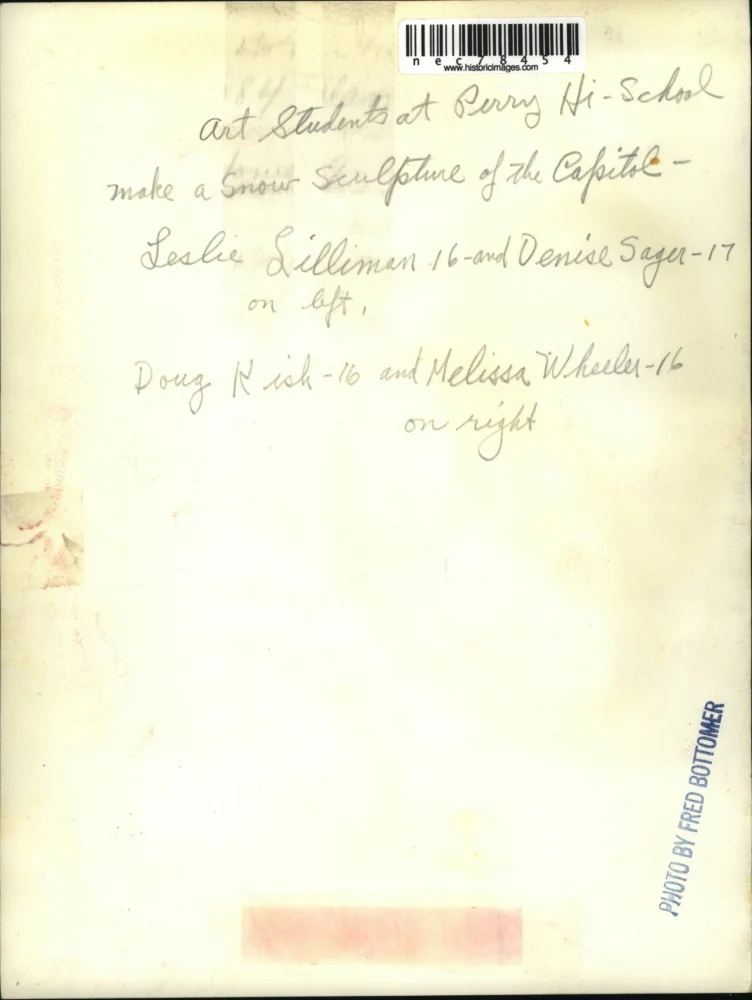 nec78454
www.historicimages.com
Art Students at Perry Hi-School
make a Snow Sculpture of the Capitol -
Leslie Lilliman 16-and Denise Sager-17
on left,
Doug Kish-16 and Melissa Wheeler-16
on right
PHOTO BY FRED BOTTOMER